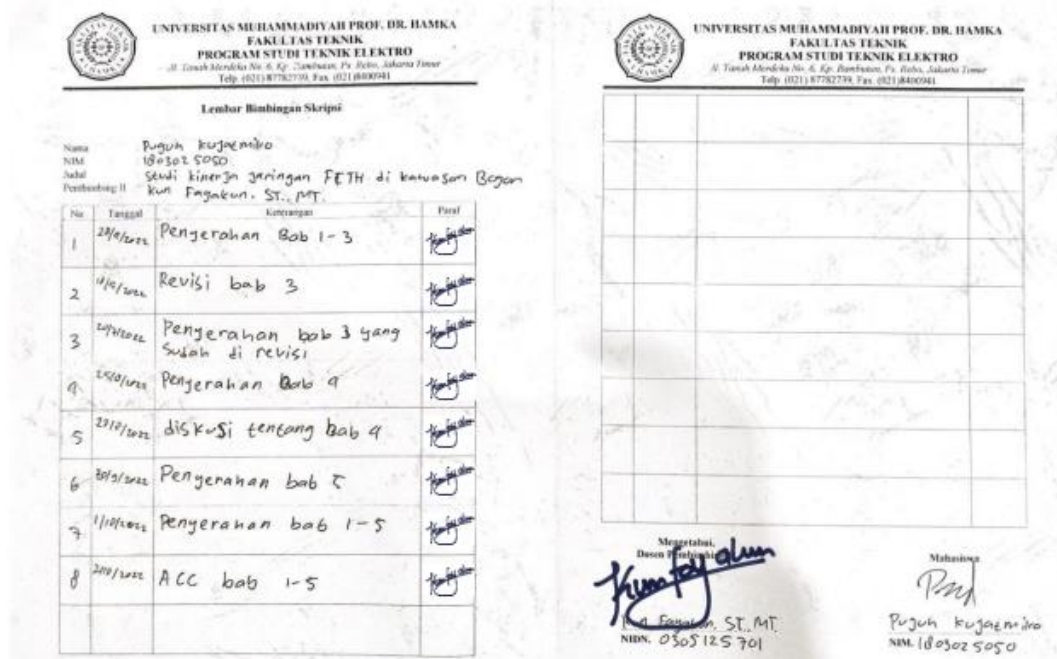 UNIVERSITAS MUHAMMADIYAH PROF. DR. HAMKA
FAKULTAS TEKNIK
PROGRAM STUDI TEKNIK ELEKTRO
Jl. Tanah Merdeka No. 6, Kp. Rambutan, Ps. Rebo, Jakarta Timur
Telp. (021) 87782739, Fax. (021) 8400941
Lembar Bimbingan Skripsi
Nama Puguh kujaemiko
NIM 1803025050
Judul Studi kinerja jaringan FETH di kawasan Bogor
Pembimbing II Kun Fayakun. ST., MT.
No Tanggal Keterangan Paraf
1 Penyerahan Bab 1-3
2 Revisi bab 3
3 Penyerahan bab 3 yang
sudah di revisi
4 Penyerahan Bab 4
5 diskusi tentang Bab 4
6 30/9/2022 Penyerahan bab 5
7 1/10/2022 Penyerahan bab 1-5
8 ACC bab 1-5
UNIVERSITAS MUHAMMADIYAH PROF. DR. HAMKA
FAKULTAS TEKNIK
PROGRAM STUDI TEKNIK ELEKTRO
Jl. Tanah Merdeka No. 6, Kp. Rambutan, Ps. Rebo, Jakarta Timur
Telp. (021) 87782739, Fax. (021) 8400941
Mengetahui,
Dosen
Mahasiswa
Fayakun. ST., MT.
NIDN. 0305125701
Puguh kujaemiko
NIM. 1803025050